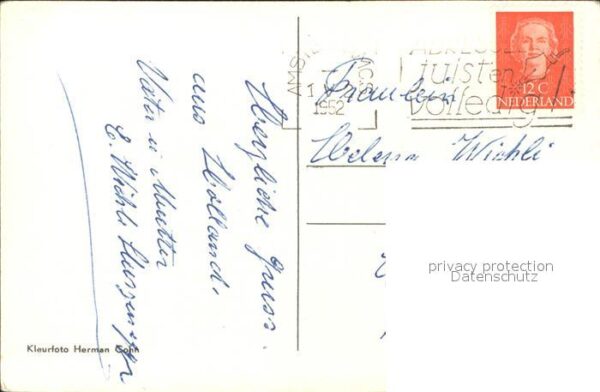 Herzliche Gruss.
aus Holland.
Vater u Mutter
E. Wichli
Kleurfoto Herman Gohn
1952
ADRESSEER
juist en
volledig!
12 C
NEDERLAND
Fräulein
Helena Wichli
privacy protection
Datenschutz